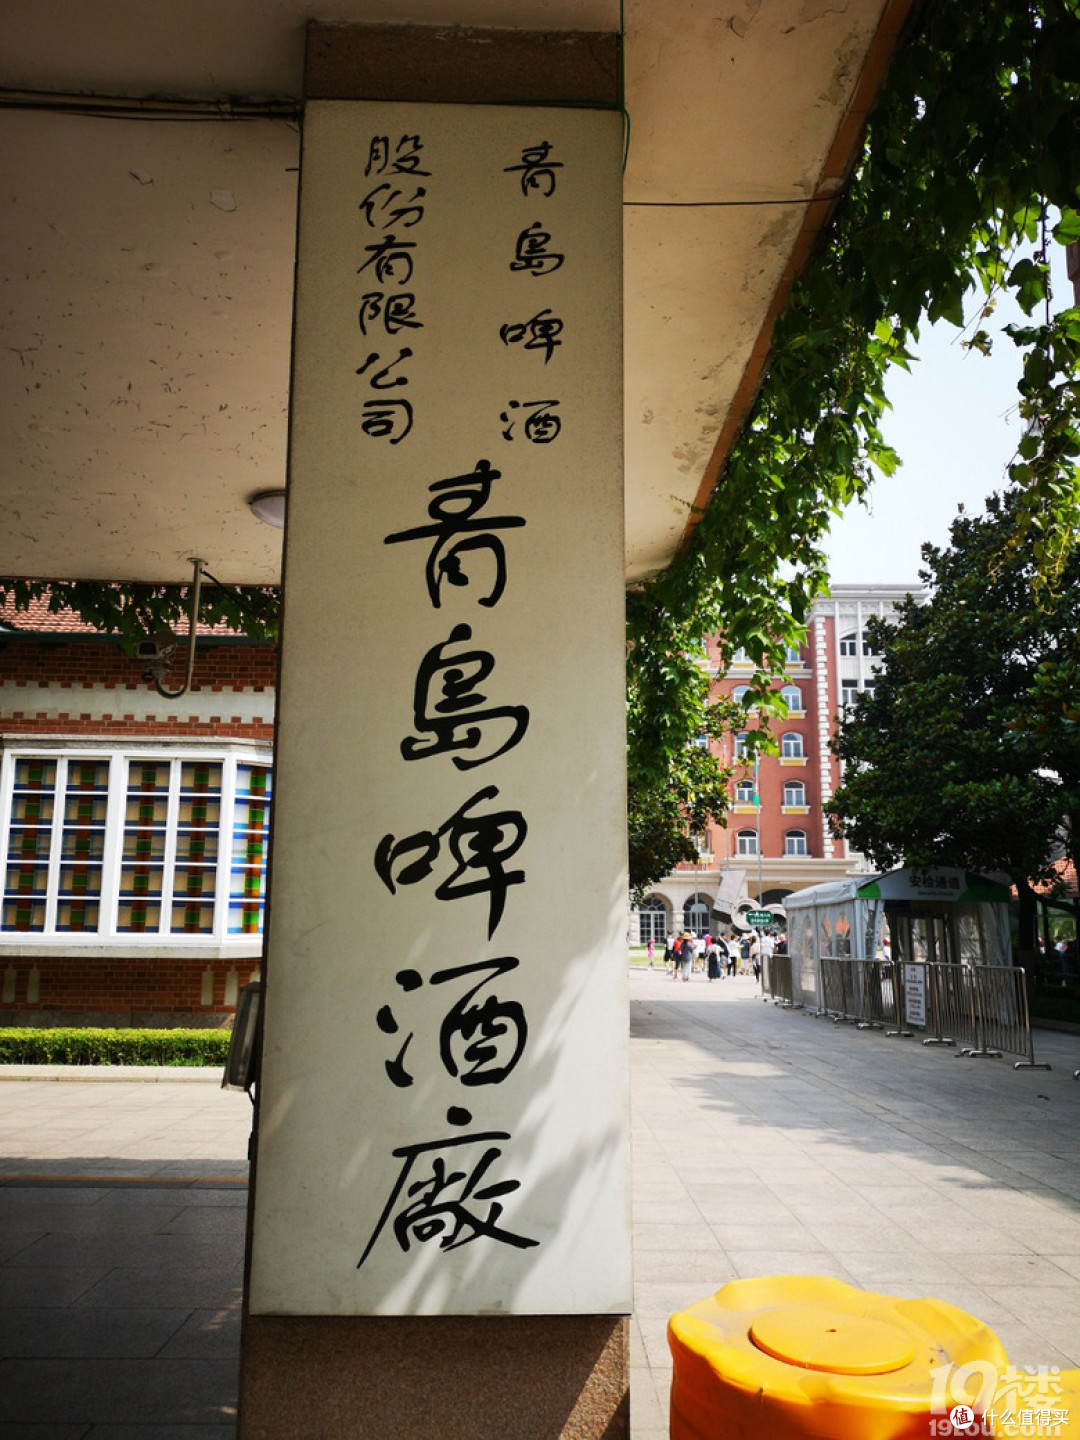 青島啤酒
股份有限公司
青島啤酒廠
安检通道
19楼
19lou.com
值 什么值得买